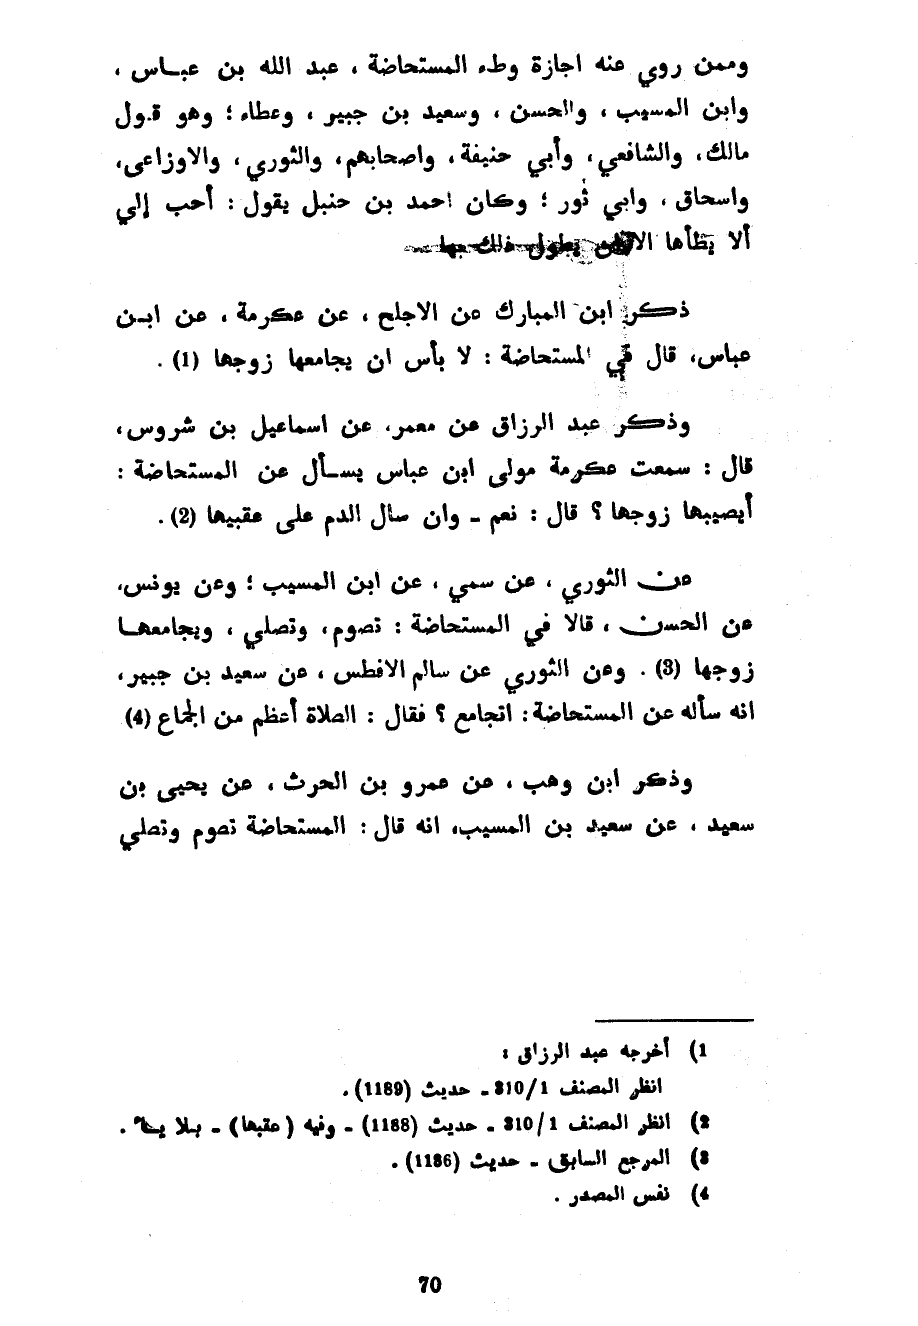 وممن روي عنه اجازة وطء المستحاضة ، عبد الله بن عباس ،
وابن المسيب ، والحسن ، وسعيد بن جبير ، وعطاء ؛ وهو قول
مالك، والشافعي، وأبي حنيفة، واصحابهم، والثوري، والاوزاعى،
واسحاق ، وابي ثور ؛ وكان احمد بن حنبل يقول : أحب إلي
ألا يطأها الا أن يطول ذلك بها
ذكر ابن المبارك عن الاجلح ، عن عكرمة ، عن ابن
عباس، قال في المستحاضة : لا بأس ان يجامعها زوجها (1) .
وذكر عبد الرزاق عن معمر، عن اسماعيل بن شروس،
قال : سمعت عكرمة مولى ابن عباس يسأل عن المستحاضة :
أيصيبها زوجها ؟ قال : نعم - وان سال الدم على عقبيها (2) .
عن الثوري ، عن سمي ، عن ابن المسيب ؛ وعن يونس،
عن الحسن ، قالا في المستحاضة : تصوم، وتصلي ، ويجامعها
زوجها (3) . وعن الثوري عن سالم الافطس ، عن سعيد بن جبير،
انه سأله عن المستحاضة : اتجامع ؟ فقال : الصلاة أعظم من الجماع (4)
وذكر ابن وهب ، عن عمرو بن الحرث ، عن يحيى بن
سعيد ، عن سعيد بن المسيب، انه قال : المستحاضة تصوم وتصلي
1) أخرجه عبد الرزاق :
انظر المصنف 310/1 - حديث (1189) .
2) انظر المصنف 310/1 - حديث (1188) - وفيه (عقبها) - بلا ياء .
3) المرجع السابق - حديث (1186) .
4) نفس المصدر .
70